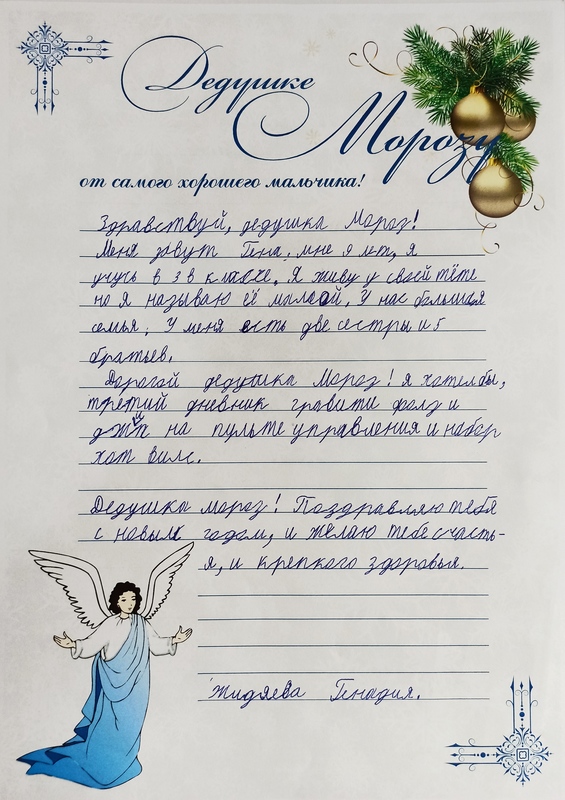 Дедушке
Морозу
от самого хорошего мальчика!
Здравствуй, дедушка Мороз!
Меня зовут Гена, мне 9 лет, я
учусь в 3 в классе. Я живу у своей тёте
но я называю её мамой. У нас большая
семья. У меня есть две сестры и 5
братьев.
Дорогой дедушка Мороз! я хотел бы,
третий дневник гравити фолз и
на пульте управления и набор
хот вилс.
Дедушка мороз! Поздравляю тебя
с новым годом, и желаю тебе счасть-
я, и крепкого здоровья.
Жидяева Генадия.